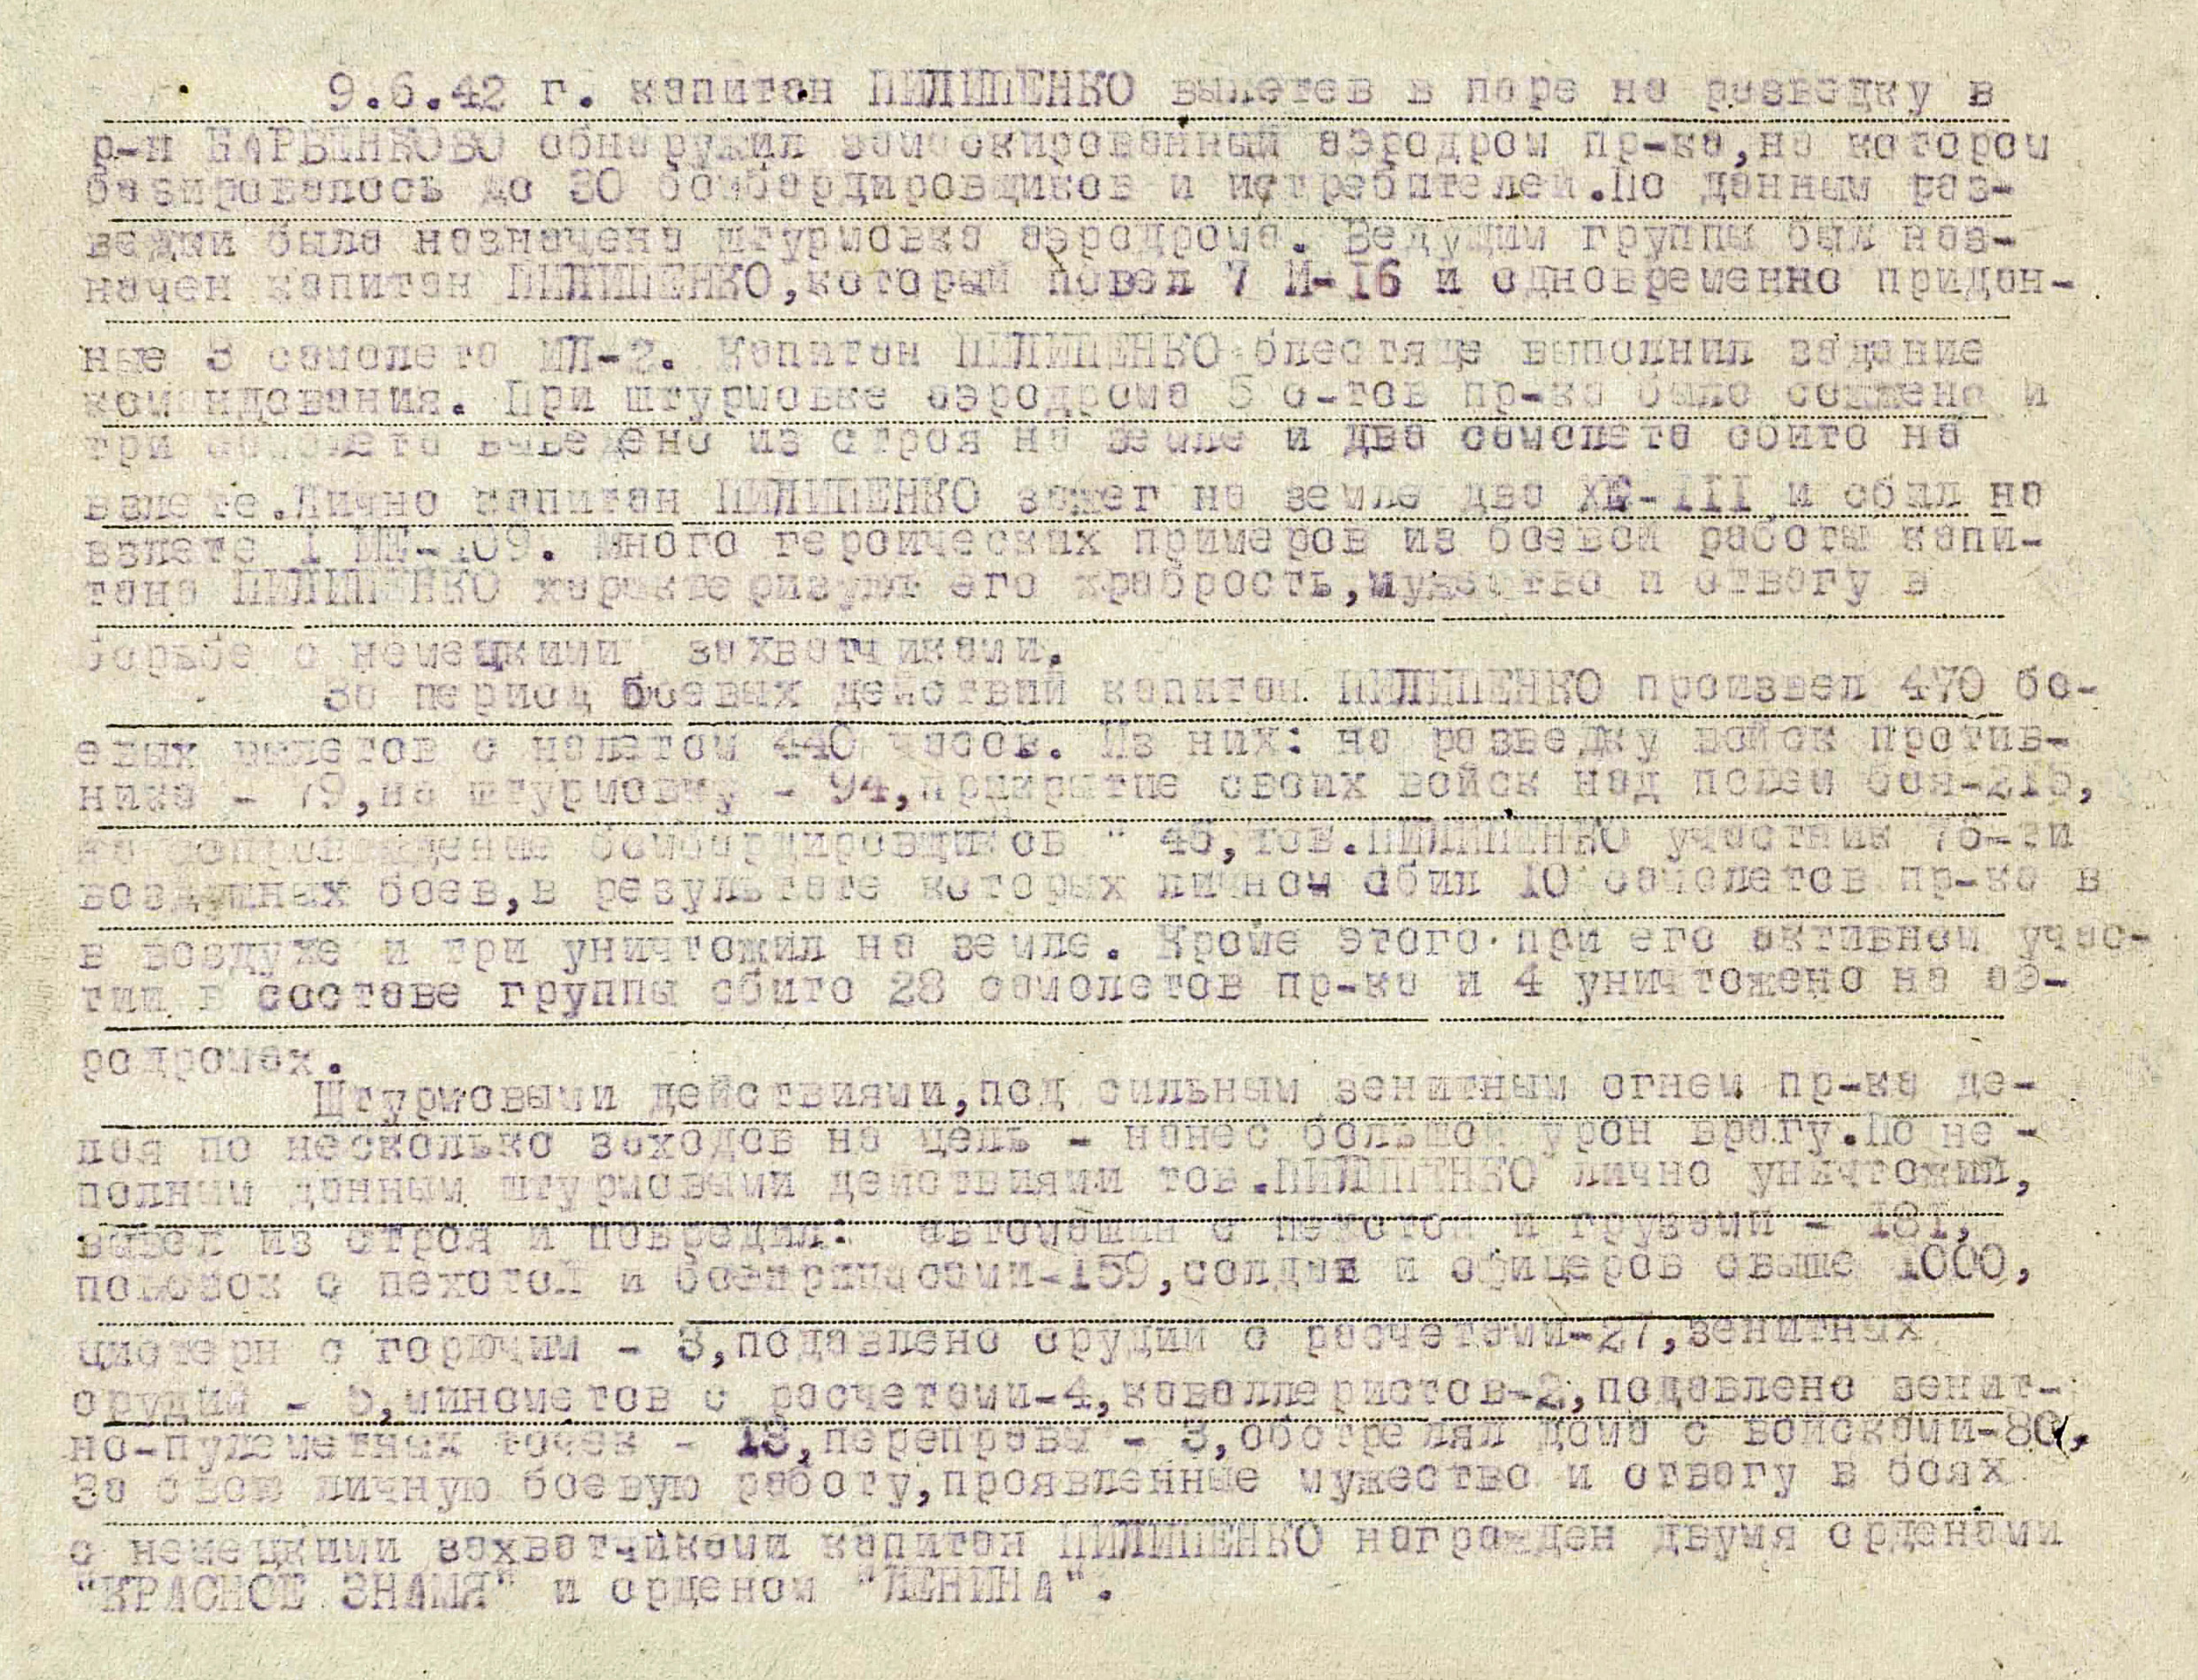 9.6.42 г. капитан ПИЛИПЕНКО вылетев в паре на разведку в
р-н БАРВЕНКОВО обнаружил замаскированный аэродром пр-ка,на котором
базировалось до 30 бомбардировщиков и истребителей.По данным раз-
ведки была назначена штурмовка аэродрома. Ведущим группы был наз-
начен капитан ПИЛИПЕНКО,который повел 7 И-16 и одновременно придан-
ные 3 самолета ИЛ-2. Капитан ПИЛИПЕНКО блестяще выполнил задание
командования. При штурмовке аэродрома 5 с-тов пр-ка было сожжено и
три самолета выведено из строя на земле и два самолета сбито на
взлете.Лично капитан ПИЛИПЕНКО зажег на земле два ХЕ-III и сбил на
взлете I МЕ-109. Много героических примеров из боевой работы капи-
тана ПИЛИПЕНКО характеризуют его храбрость,мужество и отвагу в
борьбе с немецкими захватчиками.
За период боевых действий капитан ПИЛИПЕНКО произвел 470 бо-
евых вылетов с налетом 440 часов. Из них: на разведку войск против-
ника - 79,на штурмовку - 94,прикрытие своих войск над полем боя-215,
на сопровождение бомбардировщиков " 45,тов.ПИЛИПЕНКО участник 76-ти
воздушных боев,в результате которых лично сбил 10 самолетов пр-ка в
в воздухе и три уничтожил на земле. Кроме этого при его активном учас-
тии в составе группы сбито 28 самолетов пр-ка и 4 уничтожено на аэ-
родромах.
Штурмовыми действиями,под сильным зенитным огнем пр-ка де-
лая по несколько заходов на цель - нанес большой урон врагу.По не -
полным данным штурмовыми действиями тов.ПИЛИПЕНКО лично уничтожил,
вывел из строя и повредил: автомашин с пехотой и грузами - 181,
повозок с пехотой и боеприпасами-159,солдат и офицеров свыше 1000,
цистерн с горючим - 3,подавлено орудий с расчетами-27,зенитных
орудий - 5,минометов с расчетами-4,каваллеристов-2,подавлено зенит-
но-пулеметных точек - 13,переправы - 3,обстрелял дома с войсками-80,
За свою личную боевую работу,проявленные мужество и отвагу в боях
с немецкими захватчиками капитан ПИЛИПЕНКО награжден двумя орденами
"КРАСНОЕ ЗНАМЯ" и орденом "ЛЕНИНА".